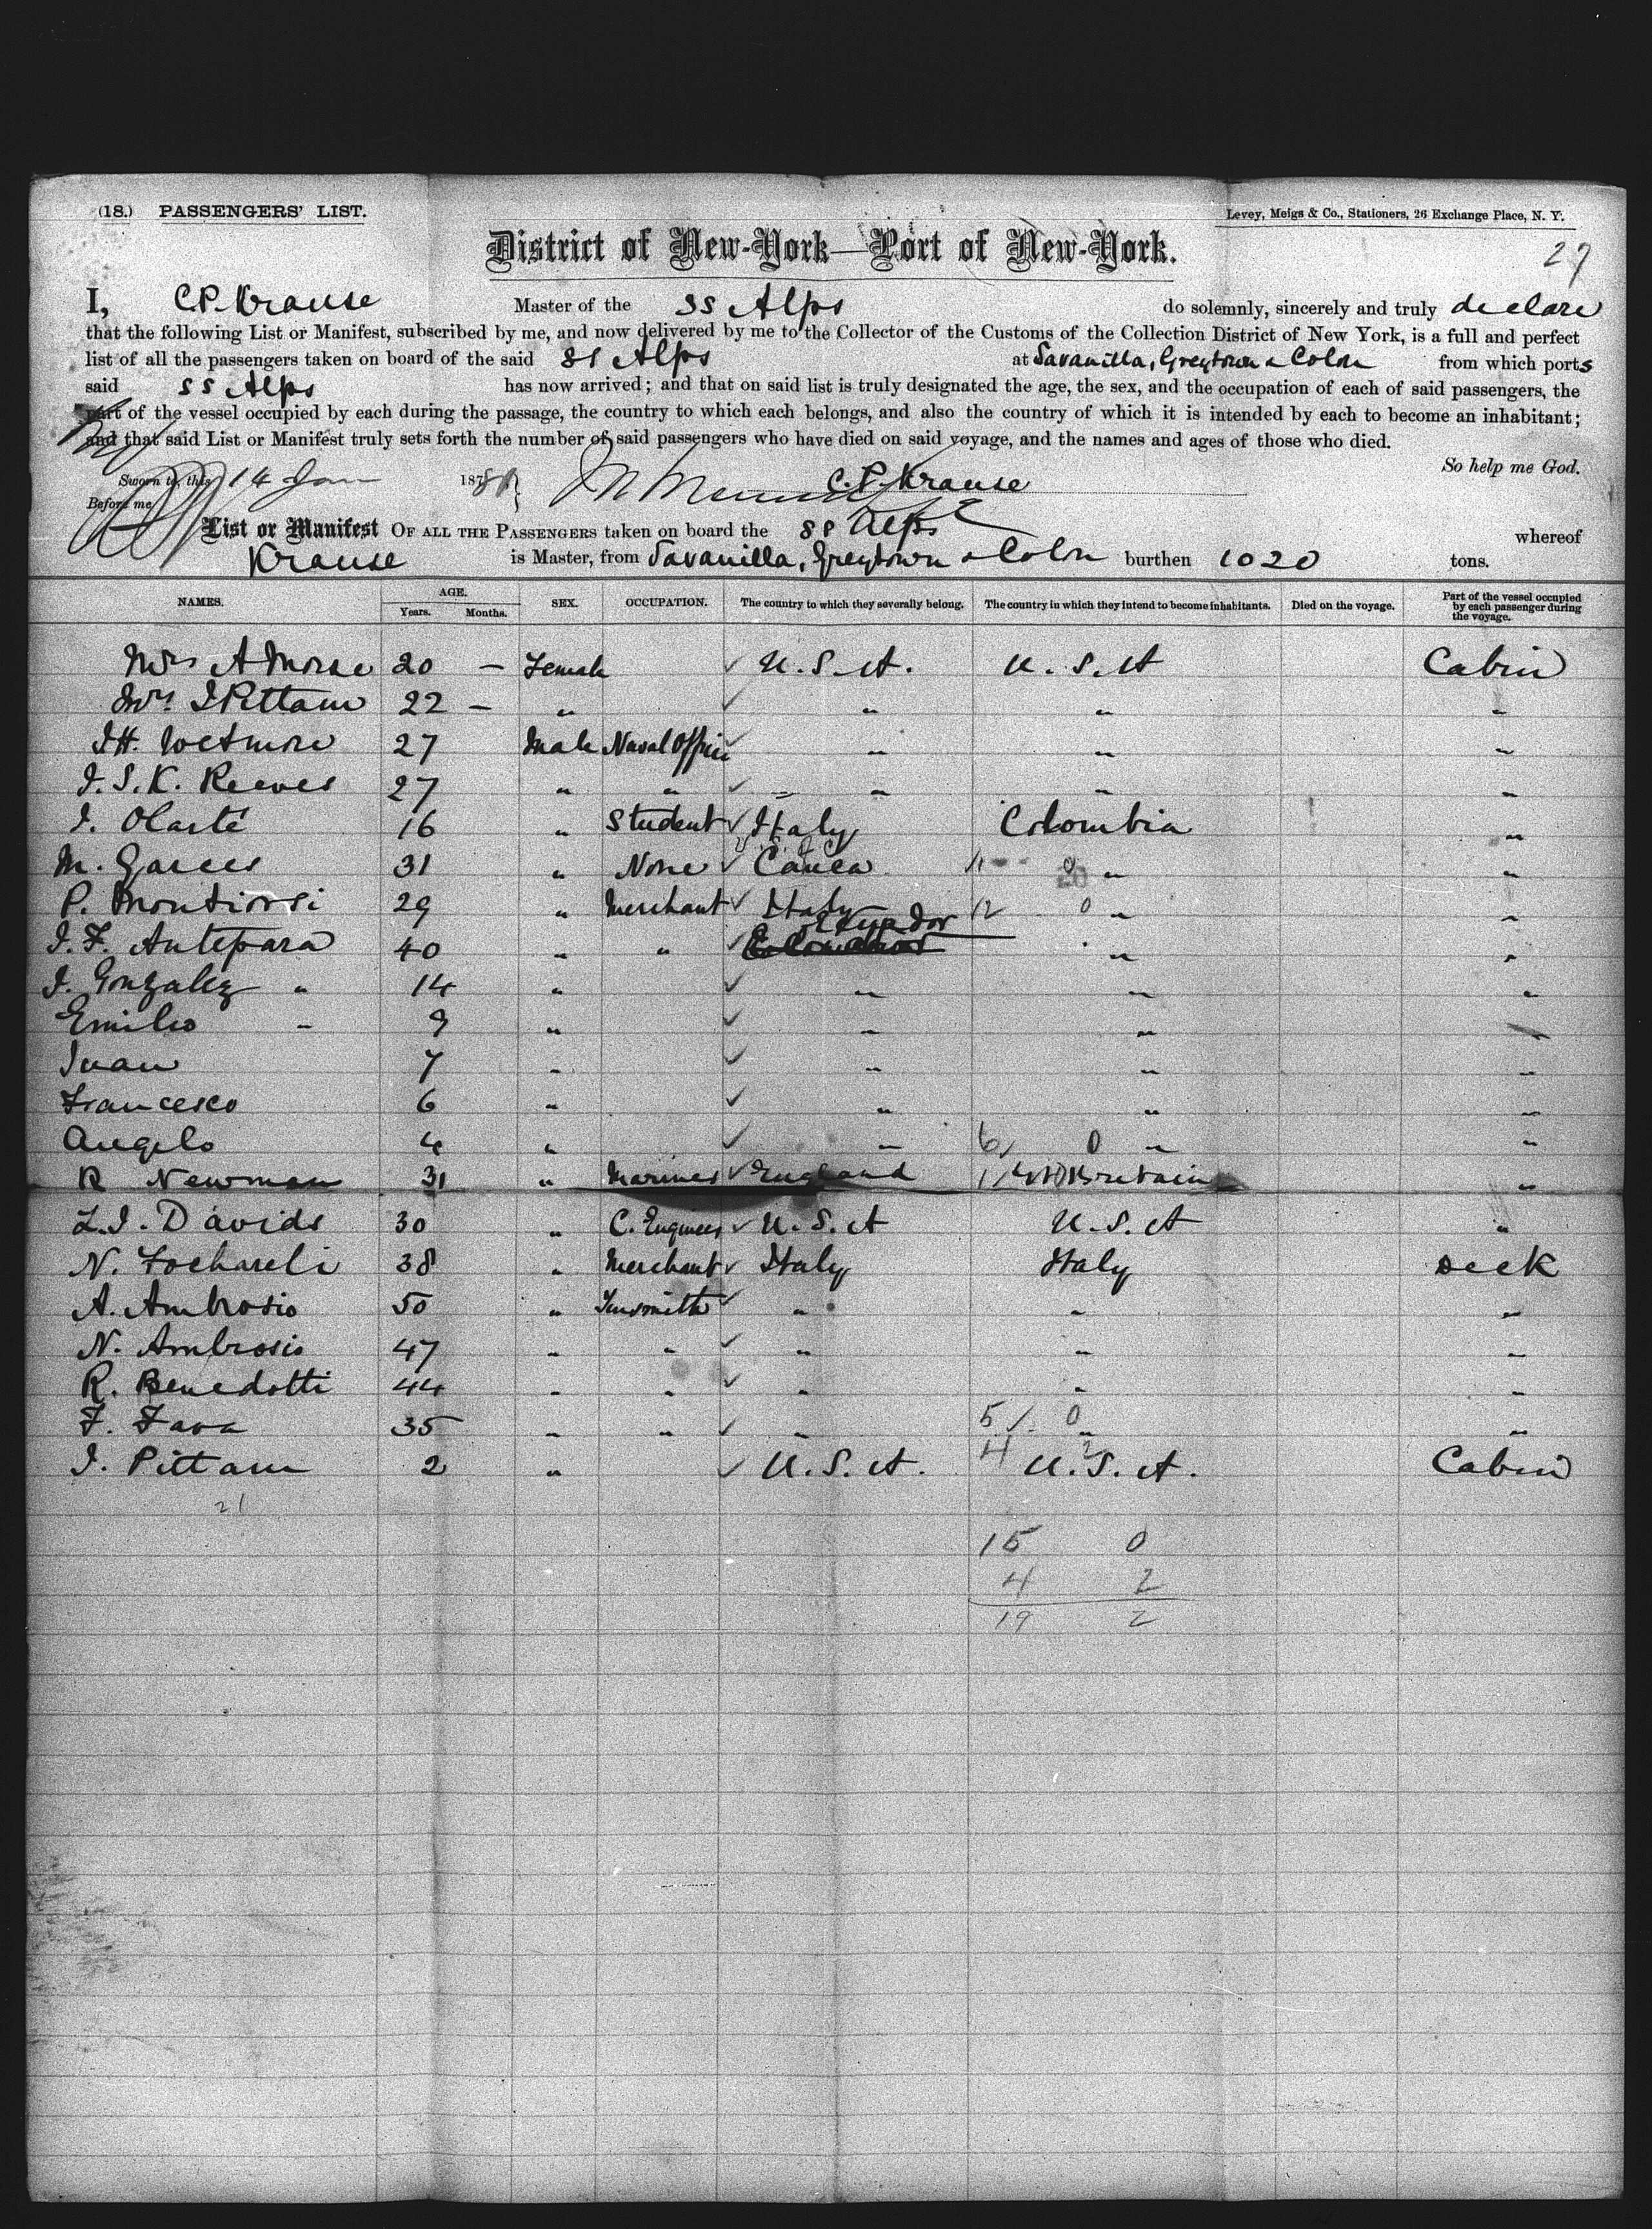 (18.) PASSENGERS' LIST.
Levey, Meigs & Co., Stationers, 26 Exchange Place, N. Y.
District of New-York—Port of New-York.
27
I, C.P. Krause Master of the SS Alps do solemnly, sincerely and truly declare
that the following List or Manifest, subscribed by me, and now delivered by me to the Collector of the Customs of the Collection District of New York, is a full and perfect
list of all the passengers taken on board of the said SS Alps at Savanilla, Greytown & Colon from which ports
said SS Alps has now arrived; and that on said list is truly designated the age, the sex, and the occupation of each of said passengers, the
part of the vessel occupied by each during the passage, the country to which each belongs, and also the country of which it is intended by each to become an inhabitant;
and that said List or Manifest truly sets forth the number of said passengers who have died on said voyage, and the names and ages of those who died.
So help me God.
Sworn to, this 14 Jan 187 C.P. Krause
Before me
List or Manifest OF ALL THE PASSENGERS taken on board the SS Alps whereof
Krause is Master, from Savanilla, Greytown & Colon burthen 1020 tons.
NAMES. AGE. Years. Months. SEX. OCCUPATION. The country to which they severally belong. The country in which they intend to become inhabitants. Died on the voyage. Part of the vessel occupied by each passenger during the voyage.
Mrs A Morse 20 – Female U.S.A. U.S.A Cabin
Mrs I Pittam 22 – " " " "
J.H. Wetmore 27 Male Naval Officer " " "
I.S.K. Reeves 27 " " " " "
I. Olarte 16 " Student Italy Colombia "
M. Garces 31 " None Cauca 11 0 " "
P. Montiorsi 29 " Merchant Italy 12 0 " "
I.F. Antepara 40 " " " "
I. Gonzalez " 14 " " " "
Emilio " 9 " " " "
Juan 7 " " " "
Francesco 6 " " " "
Angelo 4 " " 6 0 " "
R Newman 31 " Marines England 1 Britain "
L.I. Davids 30 " C. Engineer U.S.A U.S.A "
N. Fochareli 38 " Merchant Italy Italy Deck
A. Ambrosio 50 " Tinsmith " " "
N. Ambrosio 47 " " " " "
R. Benedotti 44 " " " " "
F. Fava 35 " " " 5 0 " "
I. Pittam 2 " U.S.A. 4 2 U.S.A. Cabin
21
15 0
4 2
19 2